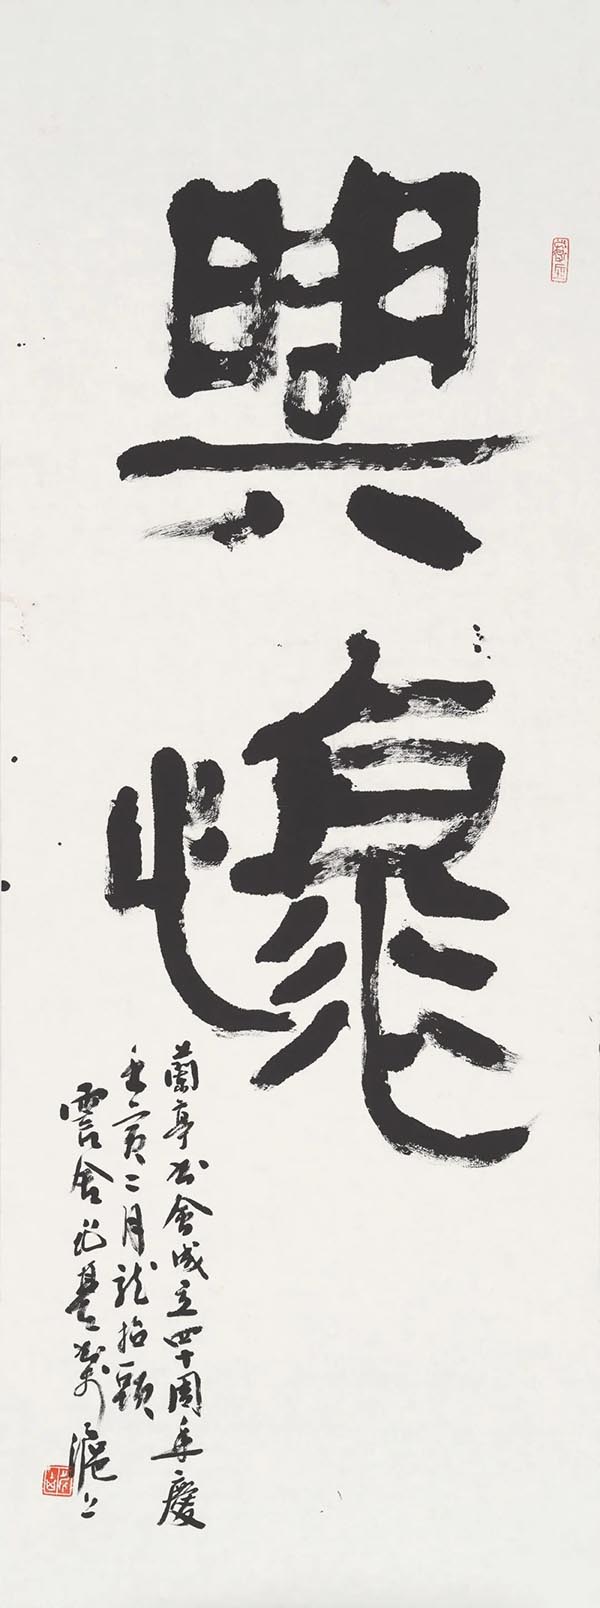 興懷
蘭亭書會成立四十周年慶
壬寅二月龍抬頭
舍書於滬上